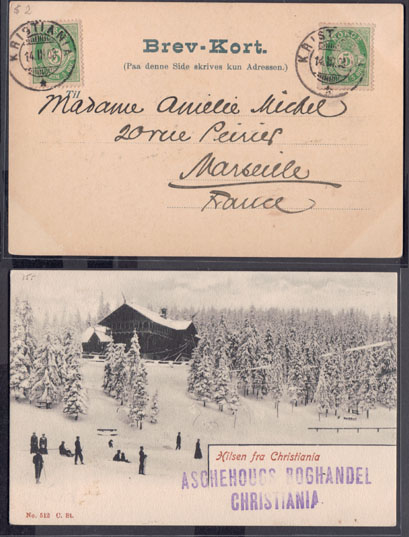 52
KRISTIANIA
14.
5
Brev-Kort.
(Paa denne Side skrives kun Adressen.)
KRIST
14.
Til
Madame Amélie Michel
20 rue Peirier
Marseille
France
Hilsen fra Christiania
ASCHEHOUGS BOGHANDEL
CHRISTIANIA
No. 512 C. 24.